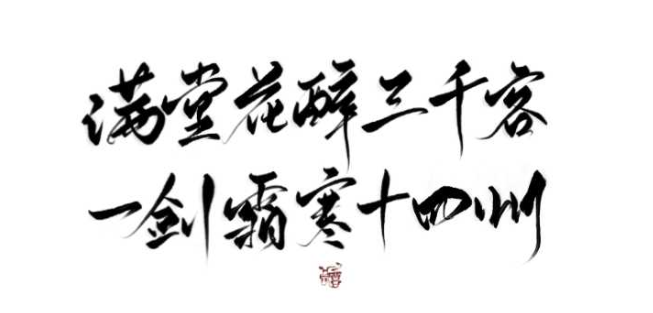 满堂花醉三千客
一剑霜寒十四州